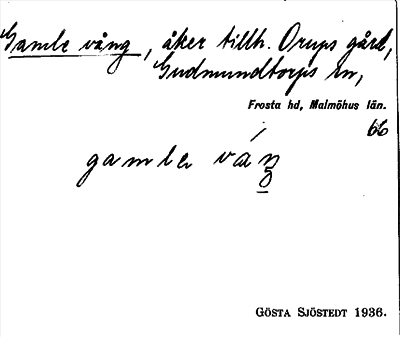 Gamle vång, åker tillh. Orups gård,
Gudmundtorps sn,
Frosta hd, Malmöhus län.
66
gamle váŋ
GÖSTA SJÖSTEDT 1936.